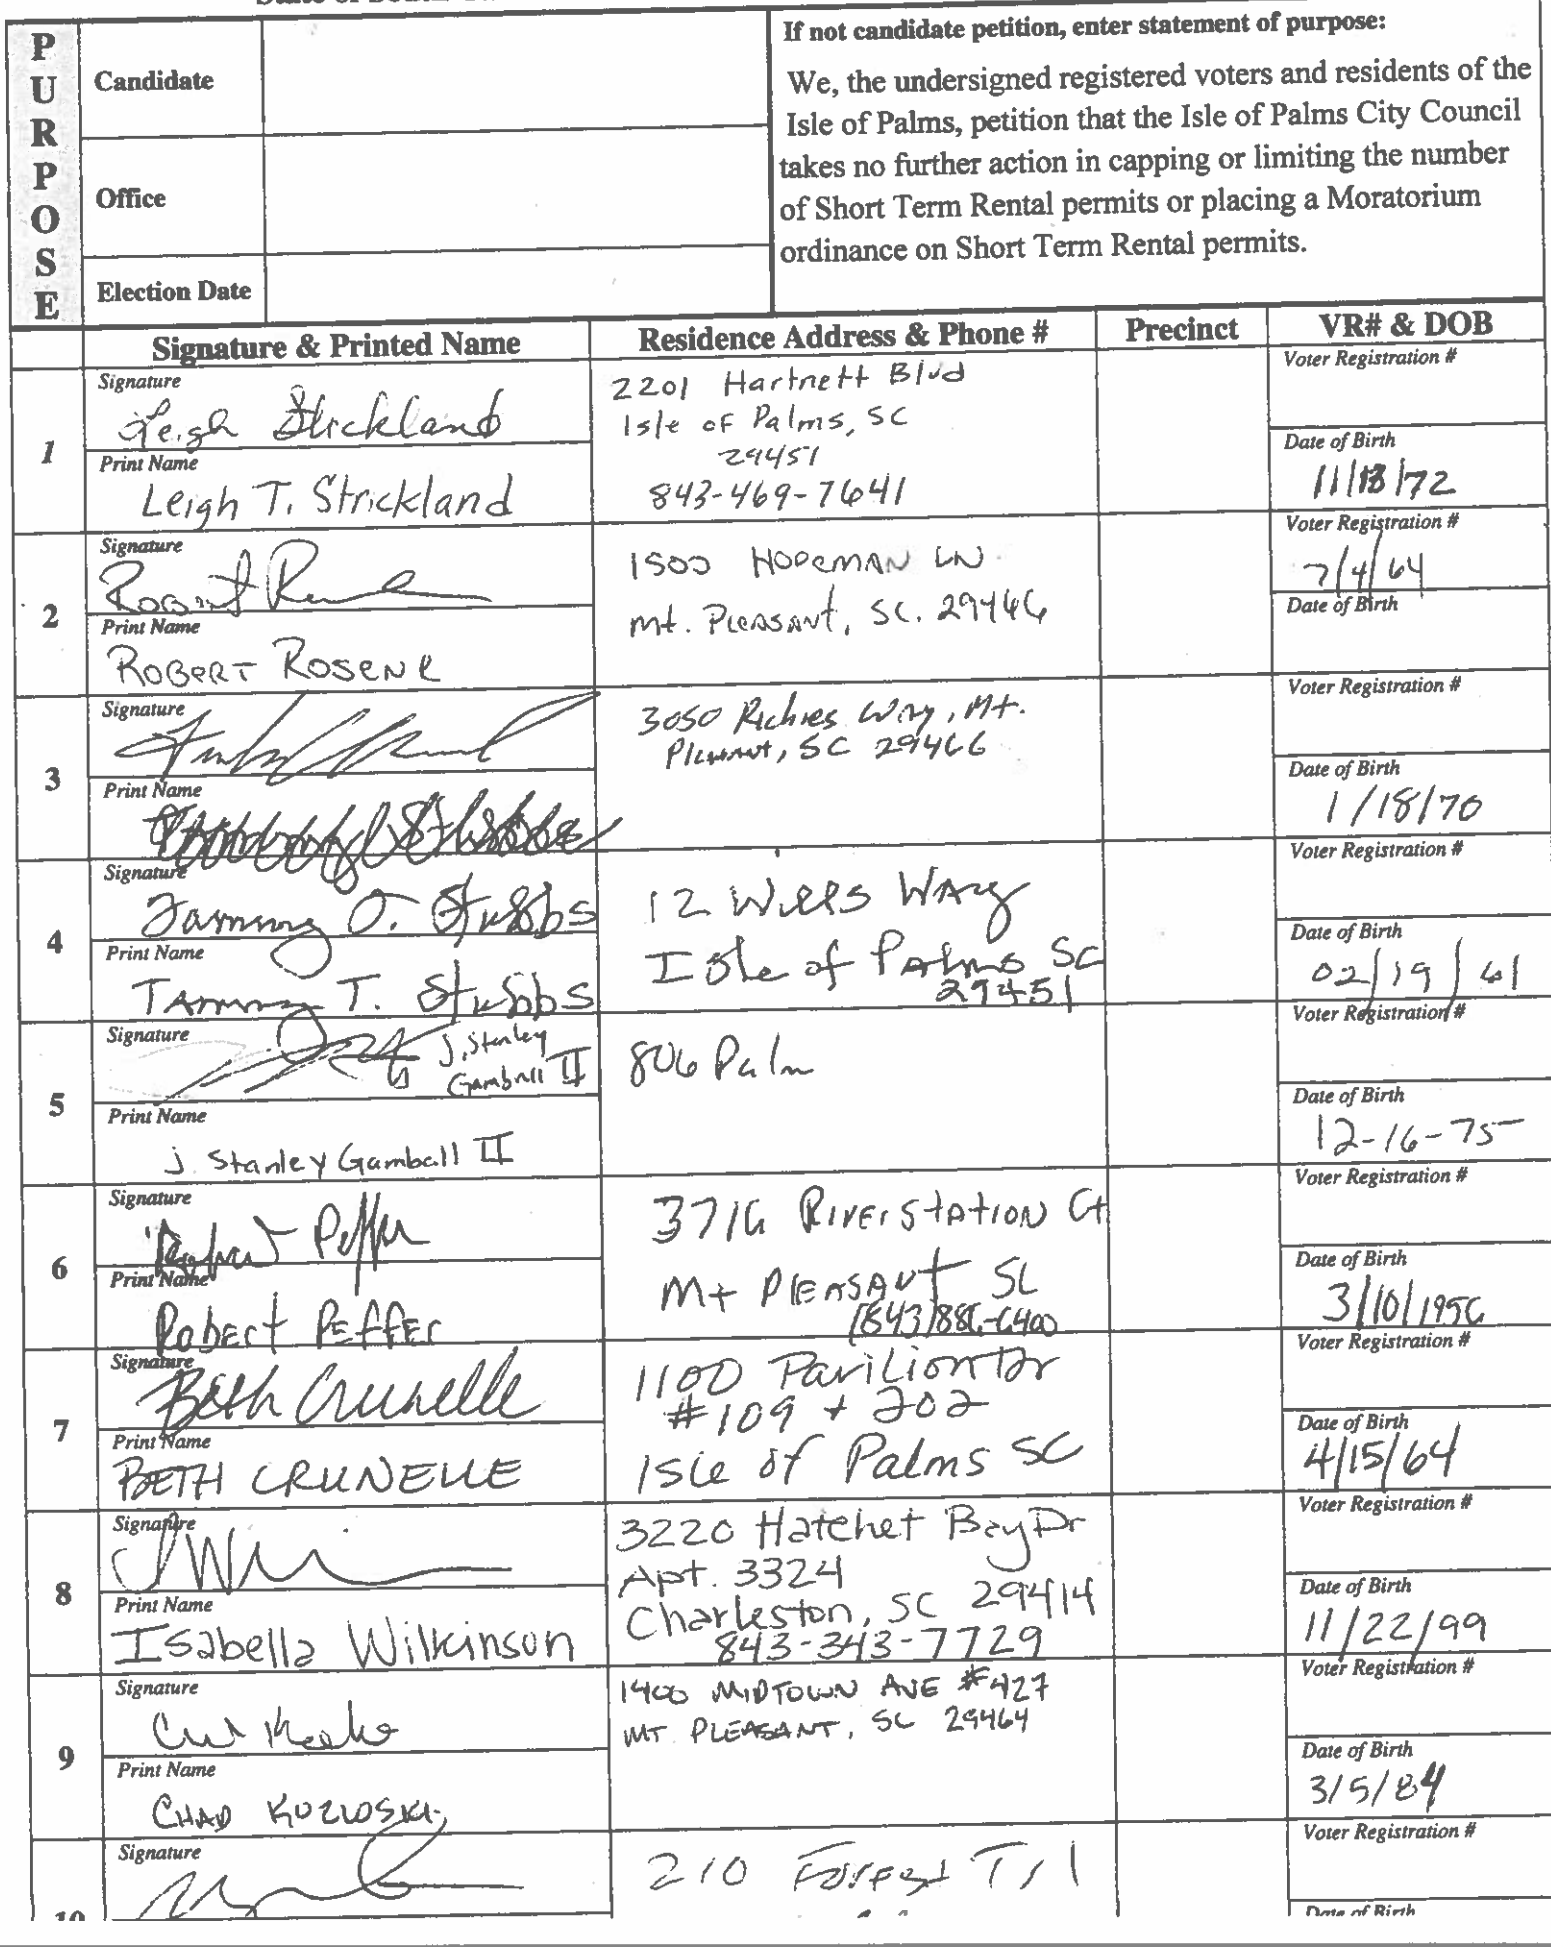 P
U
R
P
O
S
E
Candidate
Office
Election Date
If not candidate petition, enter statement of purpose:
We, the undersigned registered voters and residents of the
Isle of Palms, petition that the Isle of Palms City Council
takes no further action in capping or limiting the number
of Short Term Rental permits or placing a Moratorium
ordinance on Short Term Rental permits.
Signature & Printed Name
Residence Address & Phone #
Precinct
VR# & DOB
1
Signature
Leigh Strickland
Print Name
Leigh T. Strickland
2201 Hartnett Blvd
Isle of Palms, SC
29451
843-469-7641
Voter Registration #
Date of Birth
11/18/72
2
Signature
Robert
Print Name
ROBERT ROSENE
1500
LN
Mt. Pleasant, SC. 29466
Voter Registration #
7/4/64
Date of Birth
3
Signature
Print Name
3050 Riches Way, Mt.
Pleasant, SC 29466
Voter Registration #
Date of Birth
1/18/70
4
Signature
Tammy T. Stubbs
Print Name
Tammy T. Stubbs
12 Wills Way
Isle of Palms SC
29451
Voter Registration #
Date of Birth
02/19/61
5
Signature
J. Stanley
Gamball II
Print Name
J. Stanley Gamball II
806 Palm
Voter Registration #
Date of Birth
12-16-75
6
Signature
Robert Peffer
Print Name
Robert Peffer
RIVERSTATION Ct
Mt PLEASANT SC
Voter Registration #
Date of Birth
3/10/1956
7
Signature
Beth Crunelle
Print Name
BETH CRUNELLE
1100 Pavilion Dr
#109 + 202
Isle of Palms SC
Voter Registration #
Date of Birth
4/15/64
8
Signature
Print Name
Isabella Wilkinson
3220 Hatchet Bay Dr
Apt. 3324
Charleston, SC 29414
843-343-7729
Voter Registration #
Date of Birth
11/22/99
9
Signature
Print Name
CHAD KOZLOSKI
1400 MIDTOWN AVE #427
MT. PLEASANT, SC 29464
Voter Registration #
Date of Birth
3/5/84
10
Signature
210 Forest Trl
Voter Registration #
Date of Birth